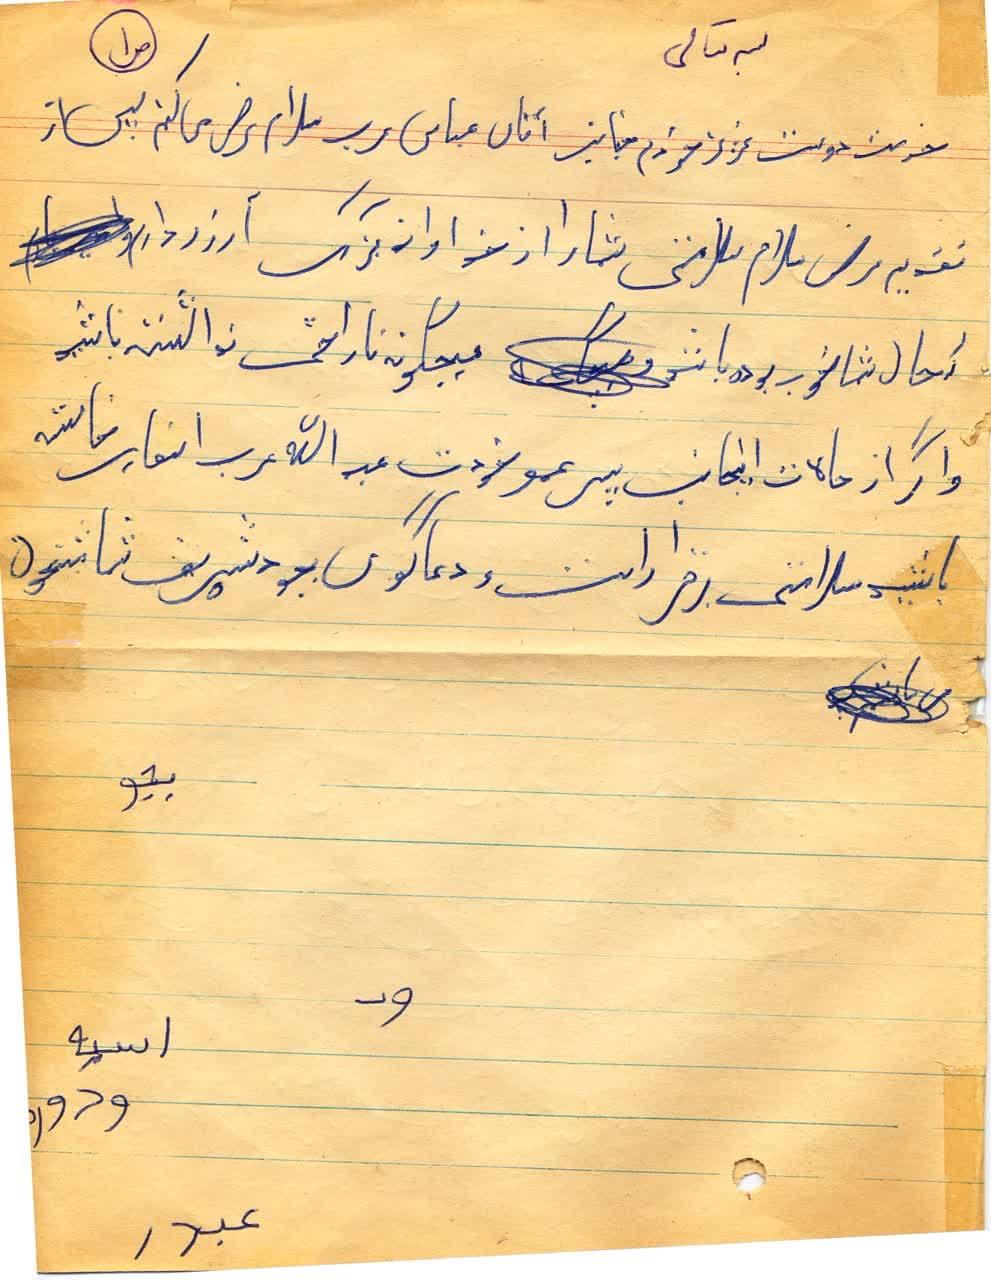 بسه تعالی
ص ۱
خدمت دوست عزیز خودم جناب آقای عباس عرب سلام عرض می کنم پس از
تقدیم عرض سلام سلامتی شما را از خداوند بزرگ آرزو دارم و
که حال شما خوب بوده باشد و هیچگونه ناراحتی نداشته باشید
و اگر از حالات اینجانب پسر عمو خودت عبدالله عرب خواسته
باشید سلامتی برقرار است و دعاگوی وجود شریف شما
می باشم
ود
اسیه
عبدر